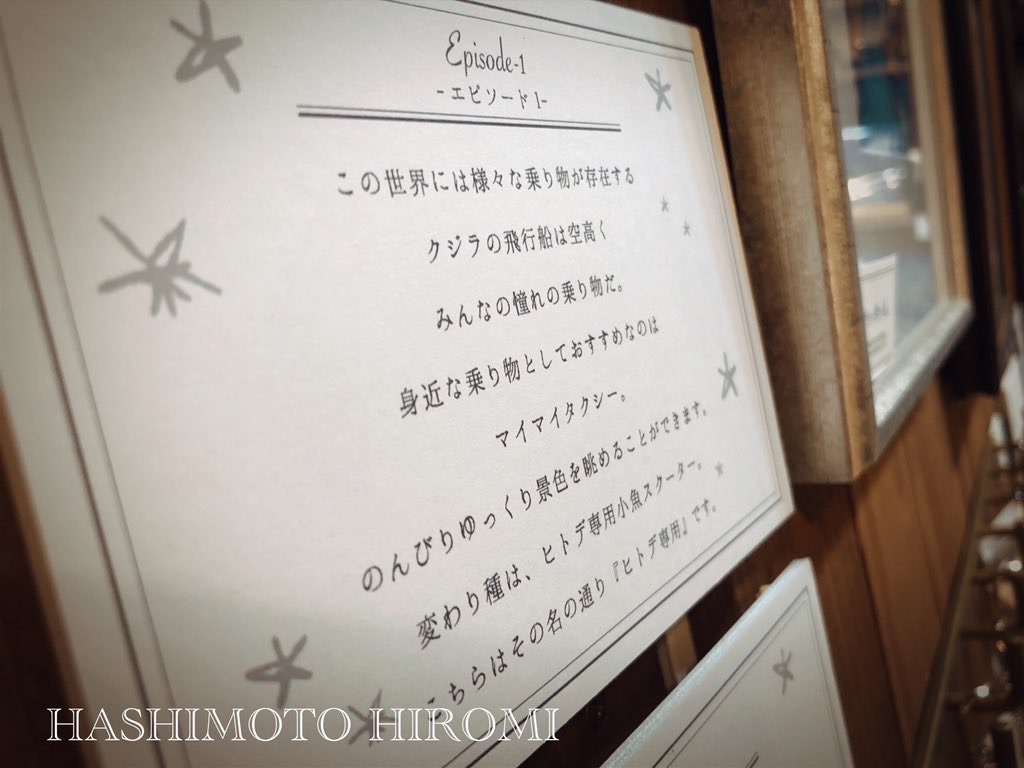 Episode-1
-エピソード1-
この世界には様々な乗り物が存在する
クジラの飛行船は空高く
みんなの憧れの乗り物だ。
身近な乗り物としておすすめなのは
マイマイタクシー。
のんびりゆっくり景色を眺めることができます。
変わり種は、ヒトデ専用小魚スクーター。
こちらはその名の通り『ヒトデ専用』です。
HASHIMOTO HIROMI